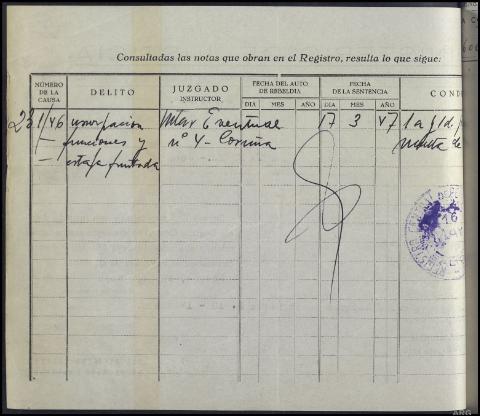 Consultadas las notas que obran en el Registro, resulta lo que sigue:
NÚMERO DE LA CAUSA
DELITO
JUZGADO INSTRUCTOR
FECHA DEL AUTO DE REBELDÍA
DIA MES AÑO
FECHA DE LA SENTENCIA
DIA MES AÑO
COND
231/46 usurpacion Eventual 17 3 47 1 a
funciones y nº 4 - Coruña multa de
estafa frustrada
16